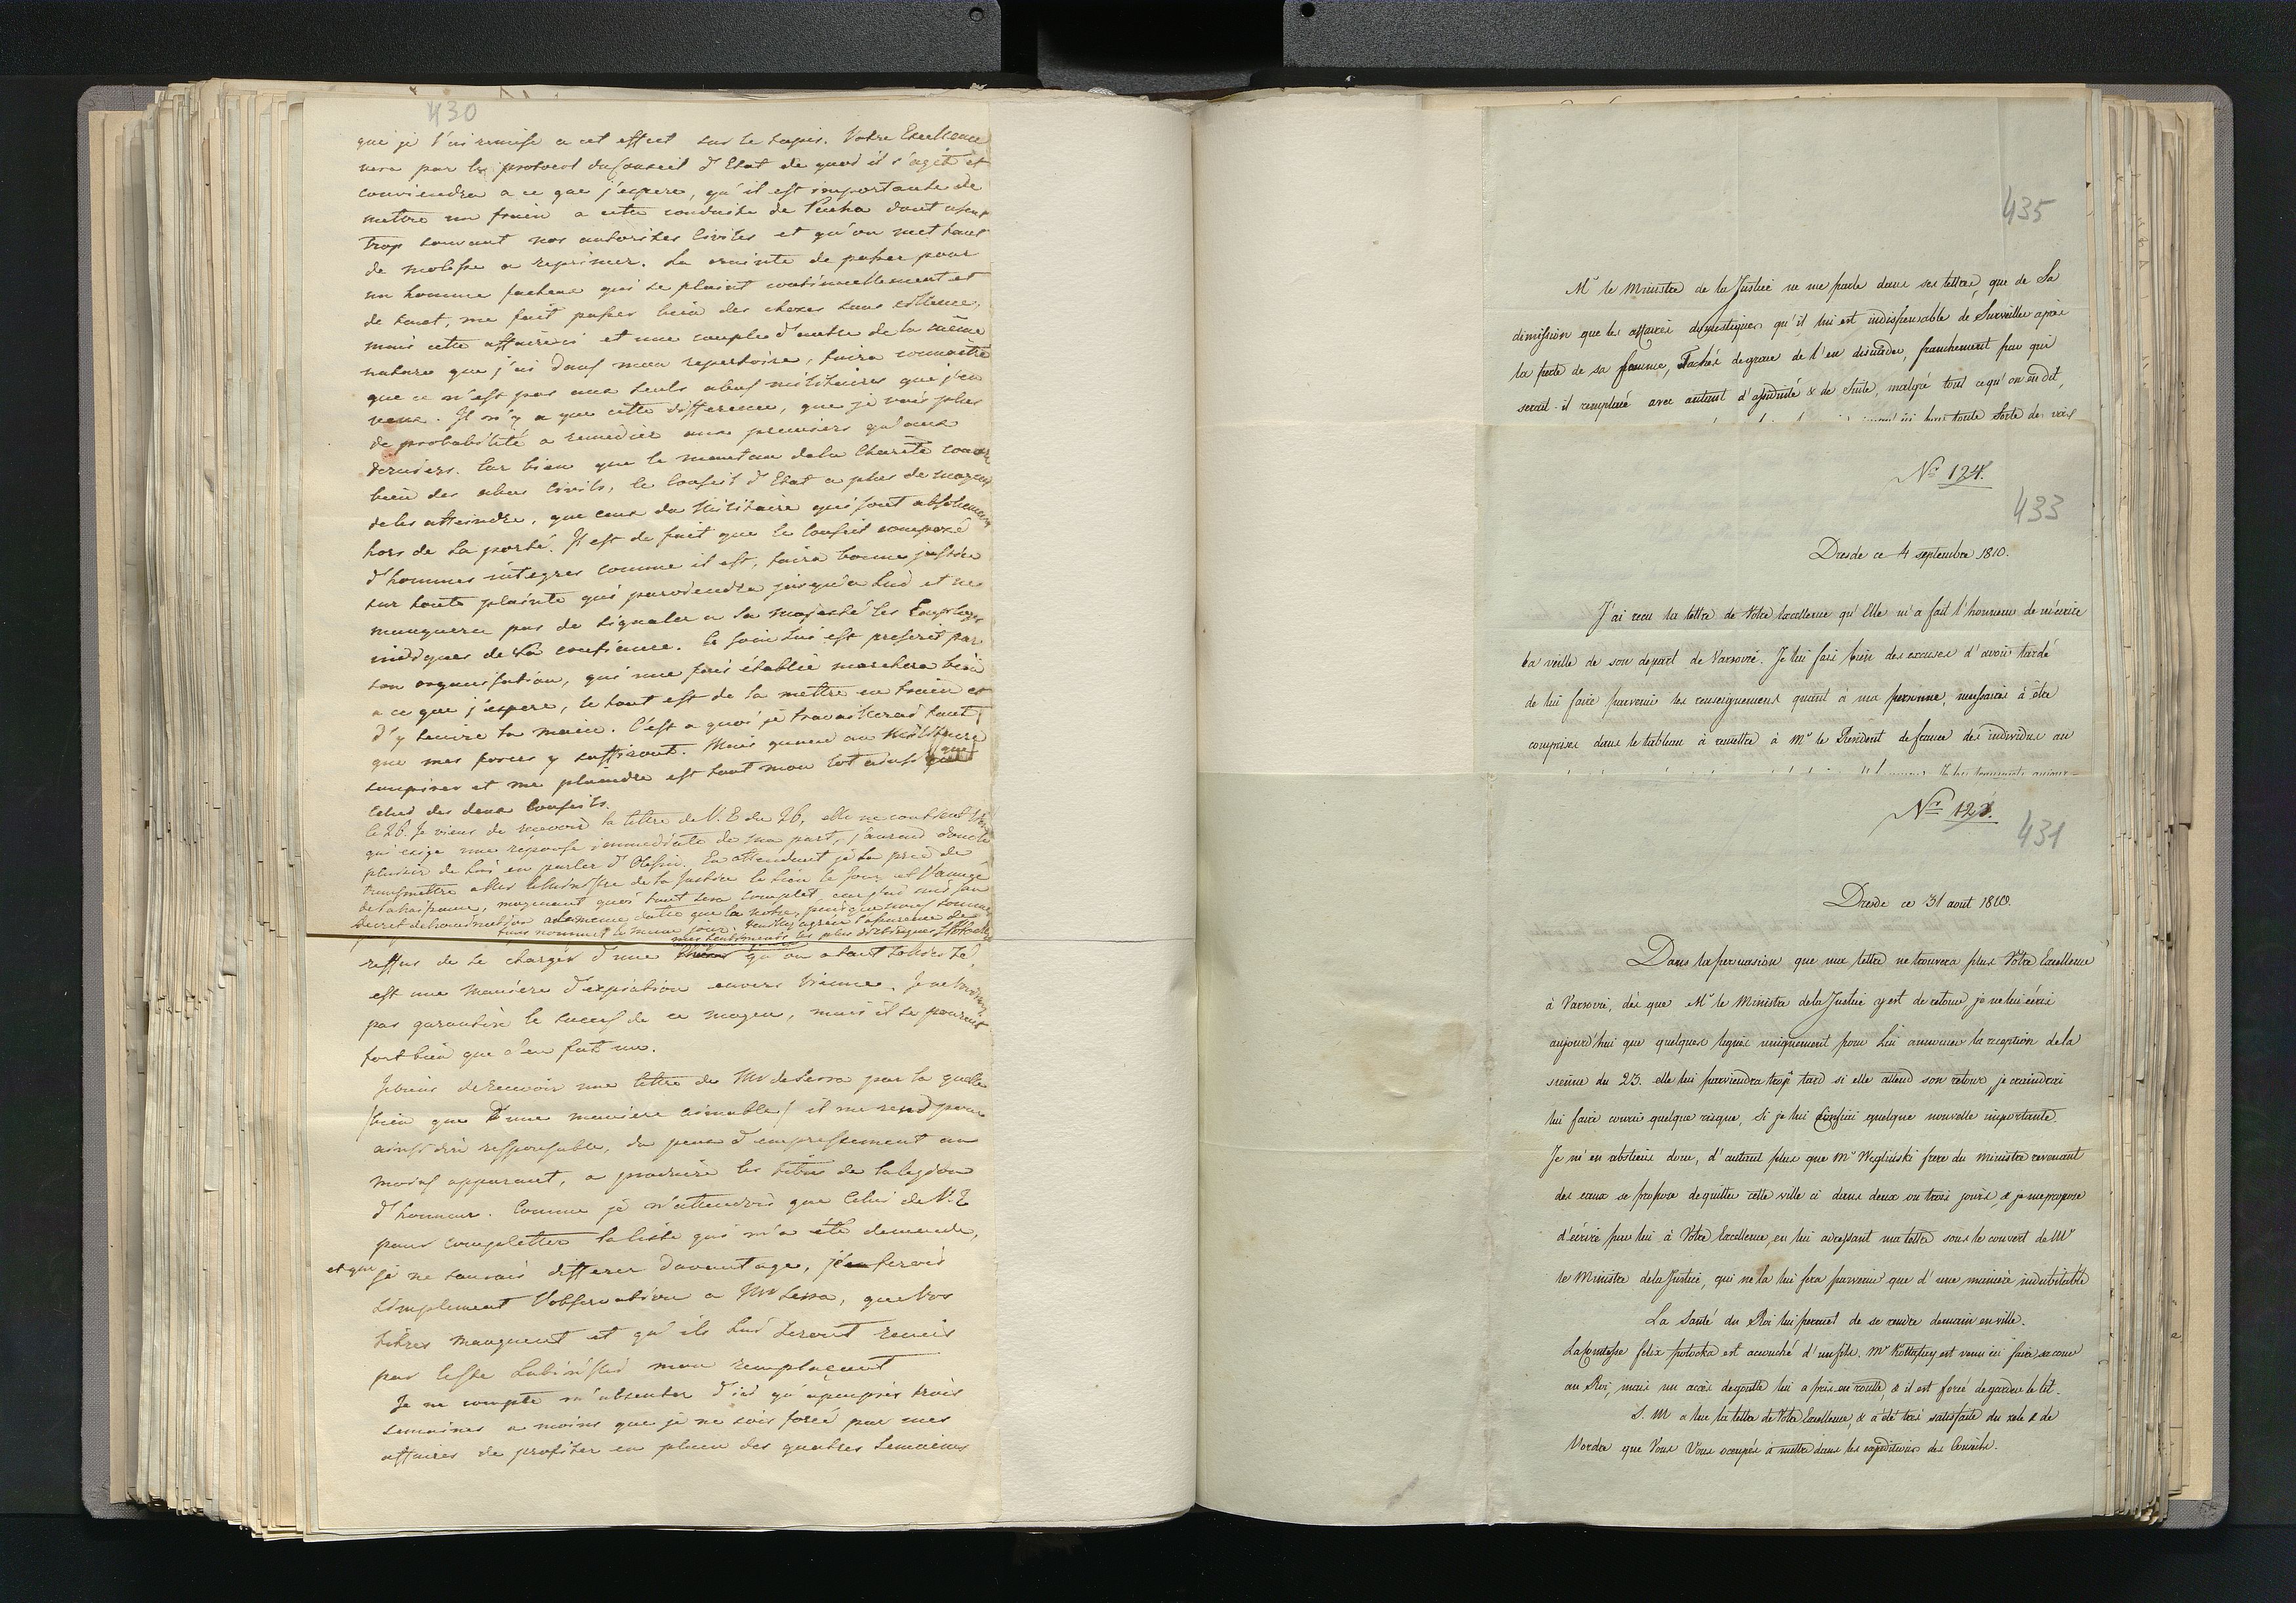 430
que je l'ai remise a cet effect sur le tapis. Votre Excellence
vera par le protocol du Conseil d'Etat de quoi il s'agit et
conviendra a ce que j'espere, qu'il est importante de
mettre un frein a cette conduite de Pacha dont usent
trop souvant nos autorites Civiles et qu'on met tant
de molesse a reprimer. La crainte de passer pour
un homme facheux qui se plaint continuellement et
de tout, me fait passer bien des choses sous silence,
mais cette affaire ci et une couple d'autre de la même
nature que j'ai dans mon repertoire, faira connaitre
que ce n'est pas aux seuls abus militaires que j'en
veux. Il n'y a que cette difference, que je vois plus
de probabilité a remedier aux premiers qu'aux
derniers. Car bien que le manteau de la Charité couvre
bien des abus Civils, le Conseil d'Etat a plus de moyens
de les atteindre, que ceux du Militaire qui sont absolument
hors de sa porté. Il est de fait que le Conseil composé
d'hommes integres comme il est, faira bonne justice
sur toute plainte qui parviendra jusqu'a Lui et ne
manquera pas de signaler a Sa Majesté les Employes
indignes de Sa confiance. Ce soin Lui est prescrit par
son organisation, qui une fois établie marchera bien
a ce que j'espere, le tout est de la mettre en train et
d'y tenir la main. C'est a quoi je travaillerai tant
que mes forces y suffiront. Mais quand au Militaire
soupirer et me plaindre est tout mon lot ainsi que
Celui des deux Conseils.
le 26. Je viens de recevoir la lettre de V. E du 26, elle ne contient rien
qui exige une reponse immediate de ma part, j'aurai donc le
plaisir de Lui en parler d'Olesin. En attendant je La prie de
transmettre a Mr le Ministre de la Justice le lieu le jour et l'année
de la naissance, moyenant quoi tout sera complet
decret de nomination a la meme datte que la notre, puisque nous sommes
tous nommés le meme jour. Veuillez agréer l'assurence de
mes sentiments les plus distingués
reffus de se charger d'une qu'on a tant sollicité,
est une maniere d'expiation envers Vienne. Je ne voudrais
pas garantire le succes de ce moyen, mais il se pourait
fort bien que c'en fut un.
Je viens de recevoir une lettre de Mr de Serra par la quelle
(bien que d'une maniere aimable) il me rend pour
ainsi dire responsable, du peux d'empressement au
moins apparent, a produire les titres de la legion
d'honneur. Comme je n'attendois que Celui de V. E
pour completter la liste qui m'a été demandé,
et que je ne saurais differer davantage, j'en ferois
simplement l'observation a Mr Serra, que Vos
titres manquent et qu'ils Lui seront remis
par le Cte Lubinski mon remplaçant
Je ne compte m'absenter d'ici qu'apeuprés trois
semaines a moins que je ne sois forcé par mes
affaires de profiter en plein des quatres semaines
435
Mr le Ministre de la Justice ne me parle dans ses lettres, que de Sa
dimission que les affaires domestiques qu'il lui est indispensable de Surveiller après
la perte de sa femme, Tachés de grace de l'en disuader, franchement par qui
serait-il remplacé avec autant d'assiduité & de Suite, malgré tout ce qu'on en dit,
Nr 124.
433
Dresde ce 4 septembre 1810.
J'ai reçu la lettre de Votre Excellence qu'Elle m'a fait l'honneur de m'écrire
la veille de son départ de Varsovie. Je lui fais bien des excuses d'avoir tardé
de lui faire parvenir les renseignements quant à ma personne, nécessaires à être
comprise dans le tableau à remettre à Mr le Resident de france des individus au
Nr 123.
431
Dresde ce 31 aout 1810.
Dans la persuasion que ma lettre ne trouvera plus Votre Excellence
à Varsovie, dès que Mr le Ministre de la Justice y est de retour, je ne lui écris
aujourd'hui que quelques lignes uniquement pour Lui annoncer la reception de la
sienne du 23. elle lui parviendra trop tard si elle attend son retour, je craindrai
lui faire courir quelque risque, Si je lui confiai quelque nouvelle importante.
Je m'en abstiens donc, d'autant plus que Mr Węgliński frere du ministre revenant
des eaux se propose de quitter cette ville ci dans deux ou trois jours, & je me propose
d'écrire par lui à Votre Excellence, en lui adressant ma lettre sous le couvert de Mr
le Ministre de la Justice, qui ne la lui fera parvenir que d'une manière indubitable
La Santé du Roi lui permet de se rendre demain en ville.
La Comtesse felix potocka est acouché d'un fils. Mr Kołłątay est venu ici faire sa cour
au Roi, mais un accès de goutte lui a pris en route, & il est forcé de garder le lit.
S. M a lue la lettre de Votre Excellence, & a été très satisfaite du zele & de
l'ordre que Vous Vous occupés à mettre dans les expéditions des Conseils.